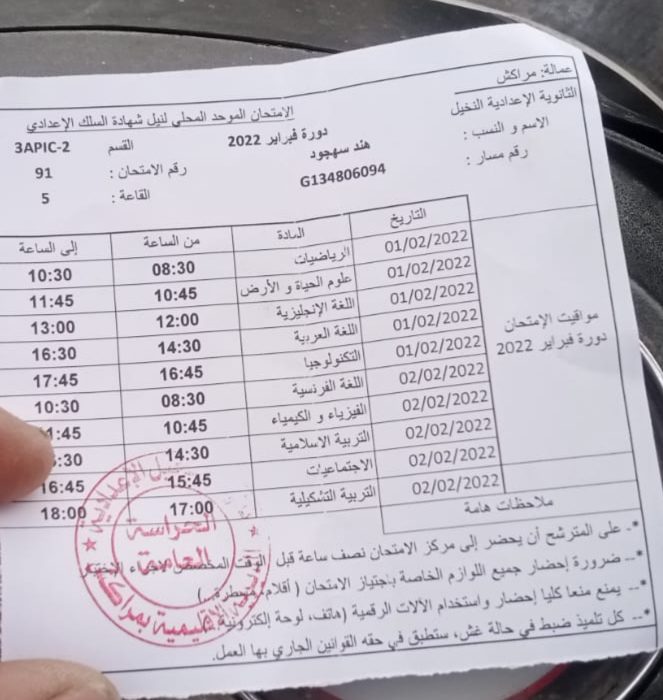 عمالة: مراكش
الثانوية الإعدادية النخيل
الامتحان الموحد المحلي لنيل شهادة السلك الإعدادي
دورة فبراير 2022
الاسم و النسب : هند سهجود القسم 3APIC-2
رقم مسار : G134806094 رقم الامتحان : 91
القاعة : 5
التاريخ المادة من الساعة إلى الساعة
مواقيت الإمتحان دورة فبراير 2022
01/02/2022 الرياضيات 08:30 10:30
01/02/2022 علوم الحياة و الأرض 10:45 11:45
01/02/2022 اللغة الإنجليزية 12:00 13:00
01/02/2022 اللغة العربية 14:30 16:30
01/02/2022 التكنولوجيا 16:45 17:45
02/02/2022 اللغة الفرنسية 08:30 10:30
02/02/2022 الفيزياء و الكيمياء 10:45 :45
02/02/2022 التربية الاسلامية 14:30 :30
02/02/2022 الاجتماعيات 15:45 16:45
02/02/2022 التربية التشكيلية 17:00 18:00
ملاحظات هامة
*.. على المترشح أن يحضر إلى مركز الامتحان نصف ساعة قبل الوقت المخصص لإجراء الإختبار
*.. ضرورة إحضار جميع اللوازم الخاصة باجتياز الامتحان ( أقلام، مسطرة..)
*.. يمنع منعا كليا إحضار واستخدام الآلات الرقمية (هاتف، لوحة إلكترونية
*.. كل تلميذ ضبط في حالة غش، ستطبق في حقه القوانين الجاري بها العمل.
الحراسة
العامة